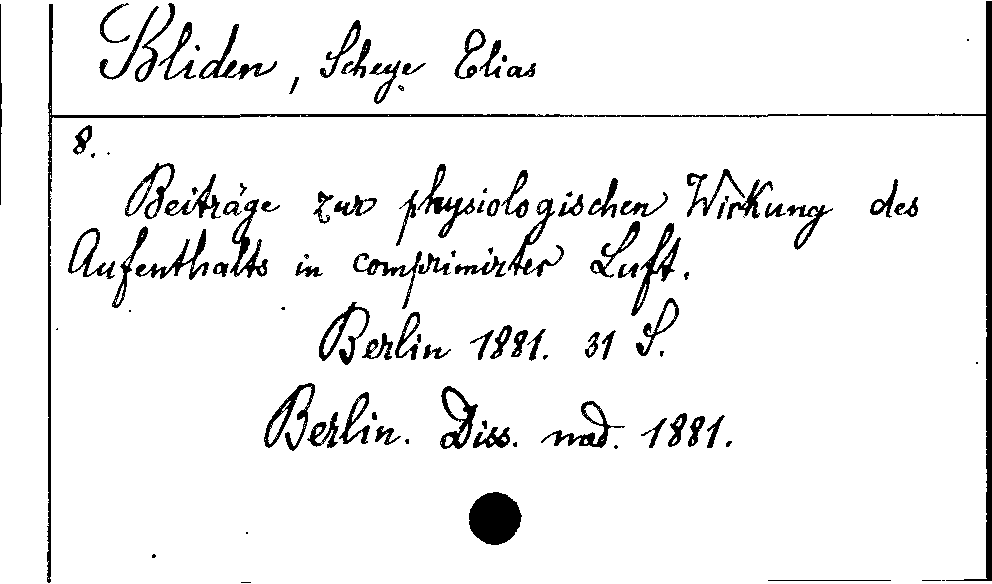 Bliden, Scheye Elias
8.
Beiträge zur physiologischen Wirkung des
Aufenthalts in comprimirter Luft.
Berlin 1881. 31 S.
Berlin. Diss. med. 1881.